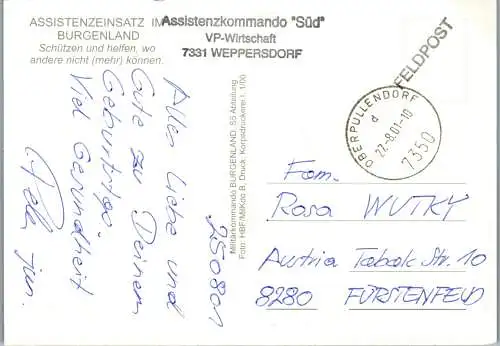 ASSISTENZEINSATZ IM
BURGENLAND
Schützen und helfen, wo
andere nicht (mehr) können.
Assistenzkommando "Süd"
VP-Wirtschaft
7331 WEPPERSDORF
FELDPOST
OBERPULLENDORF
d
27.-8.01-10
7350
250801
Alles Liebe und
Gute zu Deinem
Geburtstag.
Viel Gesundheit
jun.
Militärkommando BURGENLAND, S5 Abteilung
Foto: HBF/MilKdo B, Druck: Korpsdruckerei I, 1/00
Fam.
Rosa WUTKY
Austria Tabak Str. 10
8280 FÜRSTENFELD